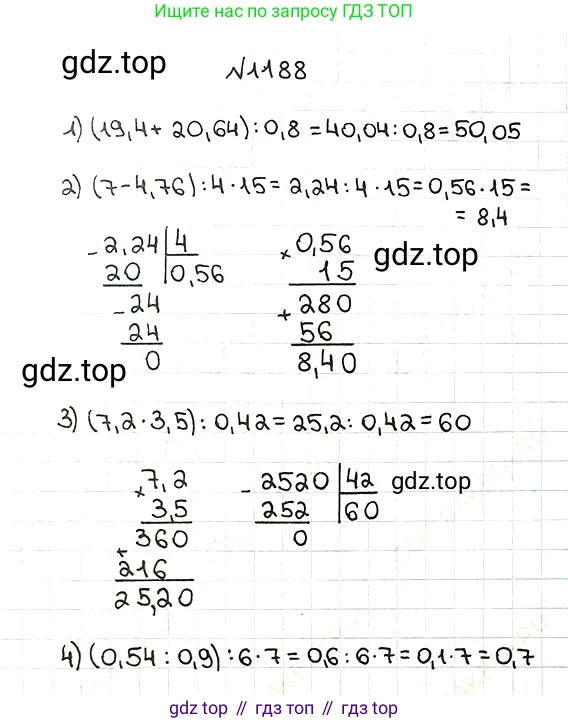 Ищите нас по запросу ГДЗ ТОП
gdz.top
№1188
1) (19,4 + 20,64) : 0,8 = 40,04 : 0,8 = 50,05
2) (7 - 4,76) : 4 · 15 = 2,24 : 4 · 15 = 0,56 · 15 =
= 8,4
- 2,24 | 4
20 | 0,56
- 24
24
0
× 0,56
15
+ 280
56
8,40
gdz.top
gdz.top
3) (7,2 · 3,5) : 0,42 = 25,2 : 0,42 = 60
× 7,2
3,5
+ 360
216
25,20
- 2520 | 42
252 | 60
0
gdz.top
4) (0,54 : 0,9) : 6 · 7 = 0,6 : 6 · 7 = 0,1 · 7 = 0,7
gdz top // гдз топ // гдз.топ